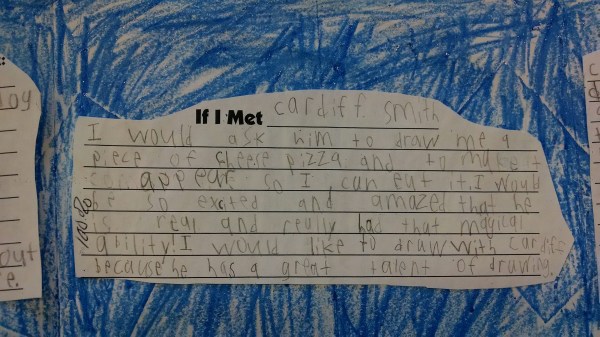 If I Met cardiff smith
I would ask him to draw me a
piece of cheese pizza and to make it
appear so I can eat it. I would
be so excited and amazed that he
is real and really has that magical
ability! I would like to draw with cardiff
because he has a great talent of drawing.